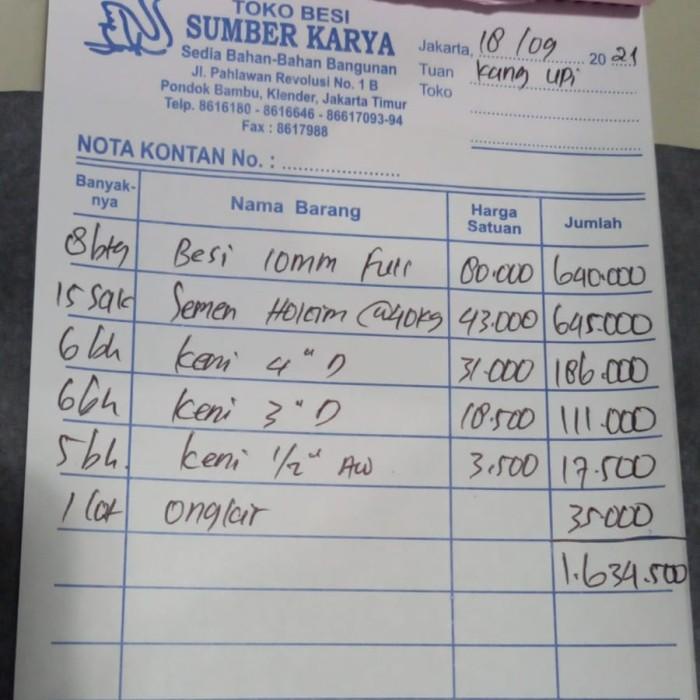 TOKO BESI
SUMBER KARYA
Sedia Bahan-Bahan Bangunan
Jl. Pahlawan Revolusi No. 1 B
Pondok Bambu, Klender, Jakarta Timur
Telp. 8616180 - 8616646 - 86617093-94
Fax : 8617988
Jakarta, 18/09 2021
Tuan Kang Upi
Toko
NOTA KONTAN No. :
Banyak-nya Nama Barang Harga Satuan Jumlah
8 btg Besi 10mm Full 80.000 640.000
15 Sak Semen Holcim @40kg 43.000 645.000
6 bh Keni 4" D 31.000 186.000
6 bh Keni 3" D 18.500 111.000
5 bh. Keni 1/2" AW 3.500 17.500
1 Lot 35000
1.634.500